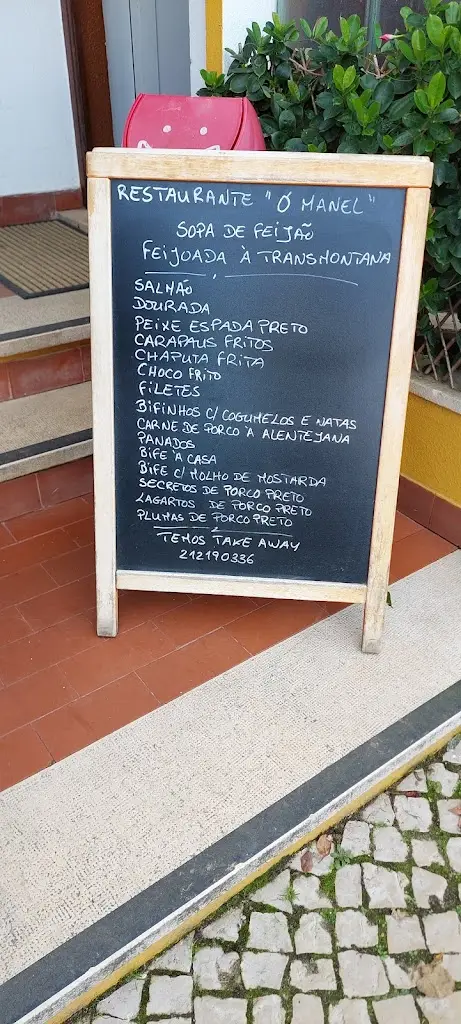 RESTAURANTE "Ó MANEL"
SOPA DE FEIJÃO
FEIJOADA À TRANSMONTANA
SALMÃO
DOURADA
PEIXE ESPADA PRETO
CARAPAUS FRITOS
CHAPUTA FRITA
CHOCO FRITO
FILETES
BIFINHOS C/ COGUMELOS E NATAS
CARNE DE PORCO À ALENTEJANA
PANADOS
BIFE À CASA
BIFE C/ MOLHO DE MOSTARDA
SECRETOS DE PORCO PRETO
LAGARTOS DE PORCO PRETO
PLUMAS DE PORCO PRETO
TEMOS TAKE AWAY
212190336